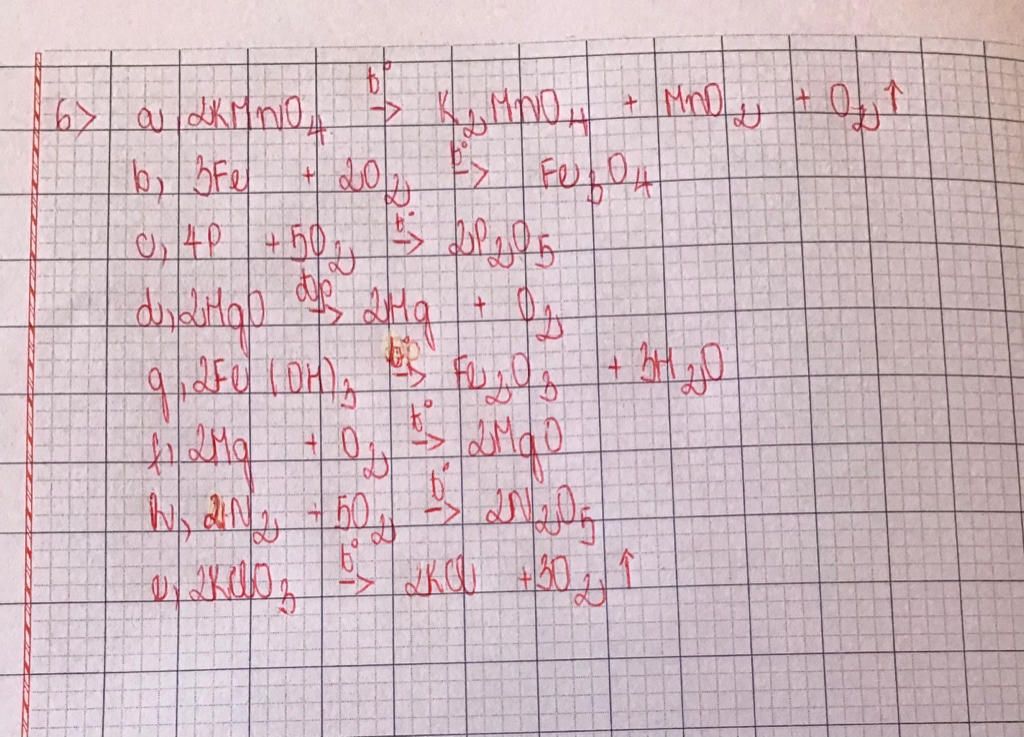 6> a, 2KMnO₄ t°→ K₂MnO₄ + MnO₂ + O₂↑
b, 3Fe + 2O₂ t°→ Fe₃O₄
c, 4P + 5O₂ t°→ 2P₂O₅
d, 2MgO đp→ 2Mg + O₂
g, 2Fe(OH)₃ t°→ Fe₂O₃ + 3H₂O
f, 2Mg + O₂ t°→ 2MgO
h, 2N₂ + 5O₂ t°→ 2N₂O₅
e, 2KClO₃ t°→ 2KCl + 3O₂↑